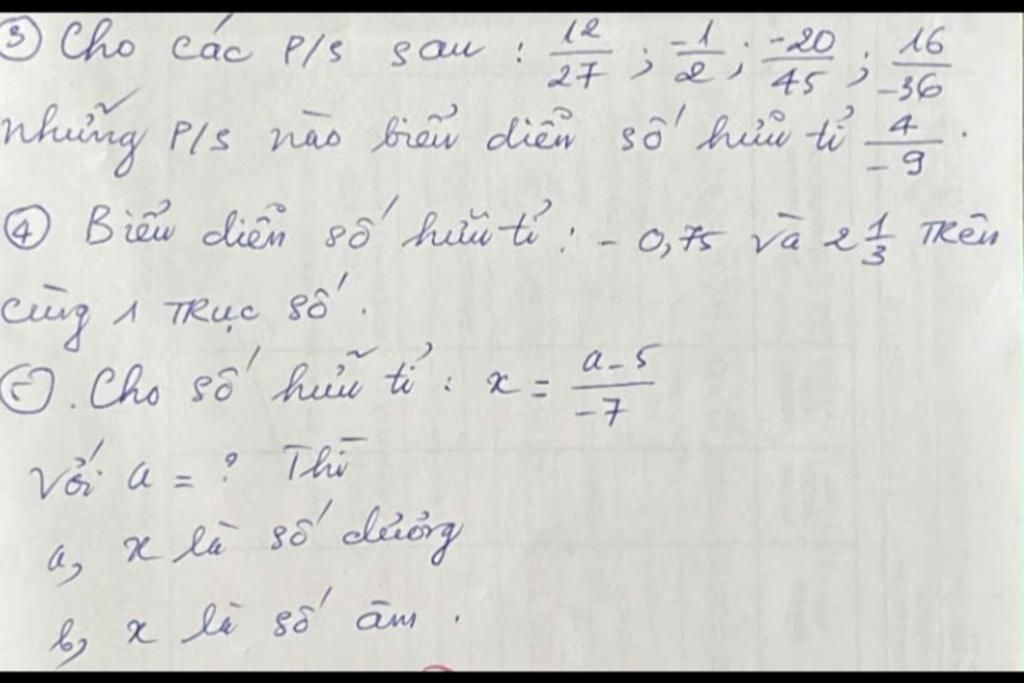 ③ Cho các P/S sau : 12/27 ; -1/2 ; -20/45 ; 16/-36
Những P/S nào biểu diễn số hữu tỉ 4/-9 .
④ Biểu diễn số hữu tỉ : - 0,75 và 2 1/3 Trên
cùng 1 Trục số .
⑤ . Cho số hữu tỉ : x = a-5/-7
Với a = ? Thì
a, x là số dương
b, x là số âm .